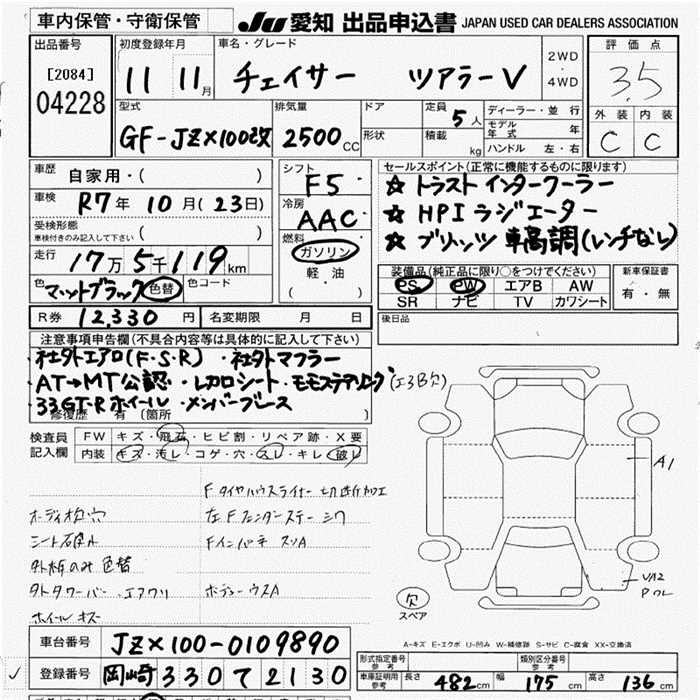 車内保管・守衛保管 JU 愛知 出品申込書 JAPAN USED CAR DEALERS ASSOCIATION
出品番号 初度登録年月 車名・グレード 評価点
[2084] 04228 11 11月 チェイサー ツアラーV 2WD・4WD 3.5
型式 排気量 ドア 定員 5人 ディーラー・並行 外装 内装
GF-JZX100改 2500CC 形状 積載 kg モデル年式 年 C C
ハンドル 左・右
車歴 自家用・( ) シフト F5 セールスポイント(正常に機能するものに限ります)
車検 R7年 10月(23日) 冷房 AAC ☆ トラスト インタークーラー
受検形態 車検付きのみ記入して下さい ( ) 燃料 ☆ HPI ラジエーター
走行 17万5千119km ガソリン ☆ ブリッツ 車高調(レンチなし)
軽油 ( )
色 マットブラック 色替 色コード 装備品(純正品に限り○をつけてください) 新車保証書
PS PW エアB AW 有・無
SR ナビ TV カワシート
R券 12,330円 名変期限 月 日 後日品
注意事項申告欄(不具合内容等は具体的に記入して下さい)
・社外エアロ(F・S・R) ・社外マフラー
・AT→MT公認・レカロシート・モモステアリング(エアB欠)
・33GT-Rホイール・メンバーブレース
修復歴 有 (箇所 )
検査員記入欄 FW キズ・飛石・ヒビ割・リペア跡・X要
内装 キズ・汚レ・コゲ・穴・スレ・キレ・破レ
Fタイヤハウスライナー 切断加工
オーディオ枠穴 左Fフェンダーステー シワ
シート破れ Fインパネ スリA
外板のみ 色替
外タワーバー・エアクリ ボディーウスA
ホイール キズ
A1
VA2
欠
スペア
A-キズ E-エクボ U-凹み W-補修跡 S-サビ C-腐食 XX-交換済
車台番号 JZX100-0109890
登録番号 岡崎 330 て 2130
形式指定番号 参考 類別区分番号 参考
車庫証明用 参考 長さ 482cm 幅 175cm 高さ 136cm